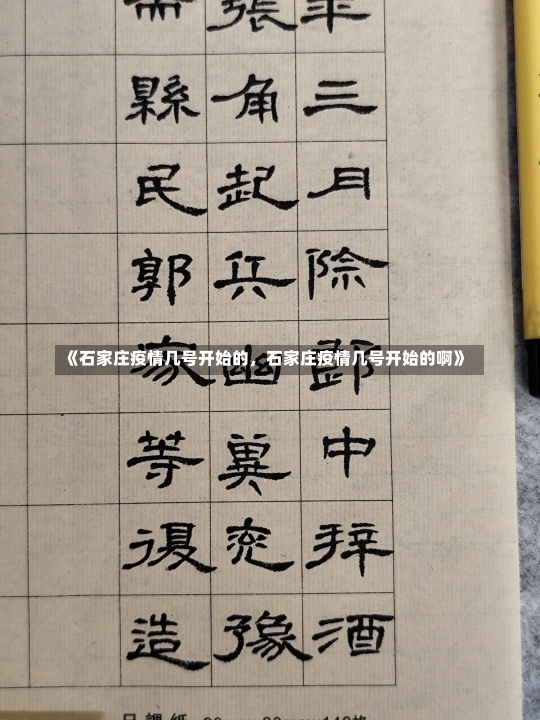 年三月除郎中拜酒
張角起兵幽冀兗豫
縣民郭家等復造
《石家庄疫情几号开始的，石家庄疫情几号开始的啊》